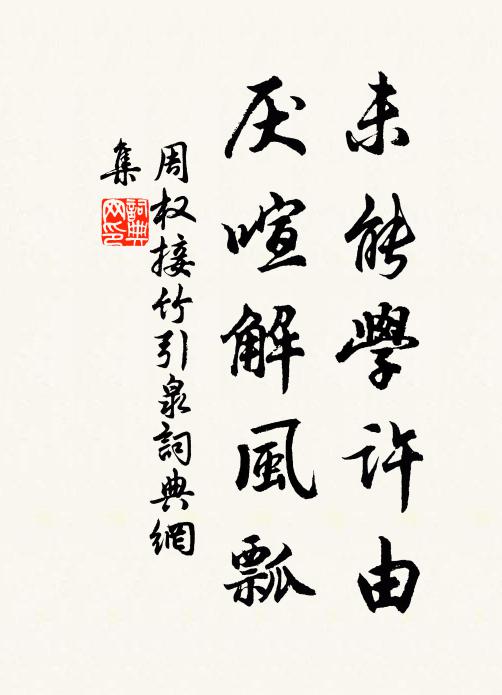 未能學許由
厌喧解風瓢
周权接竹引泉詞典網
集
詞典
网印